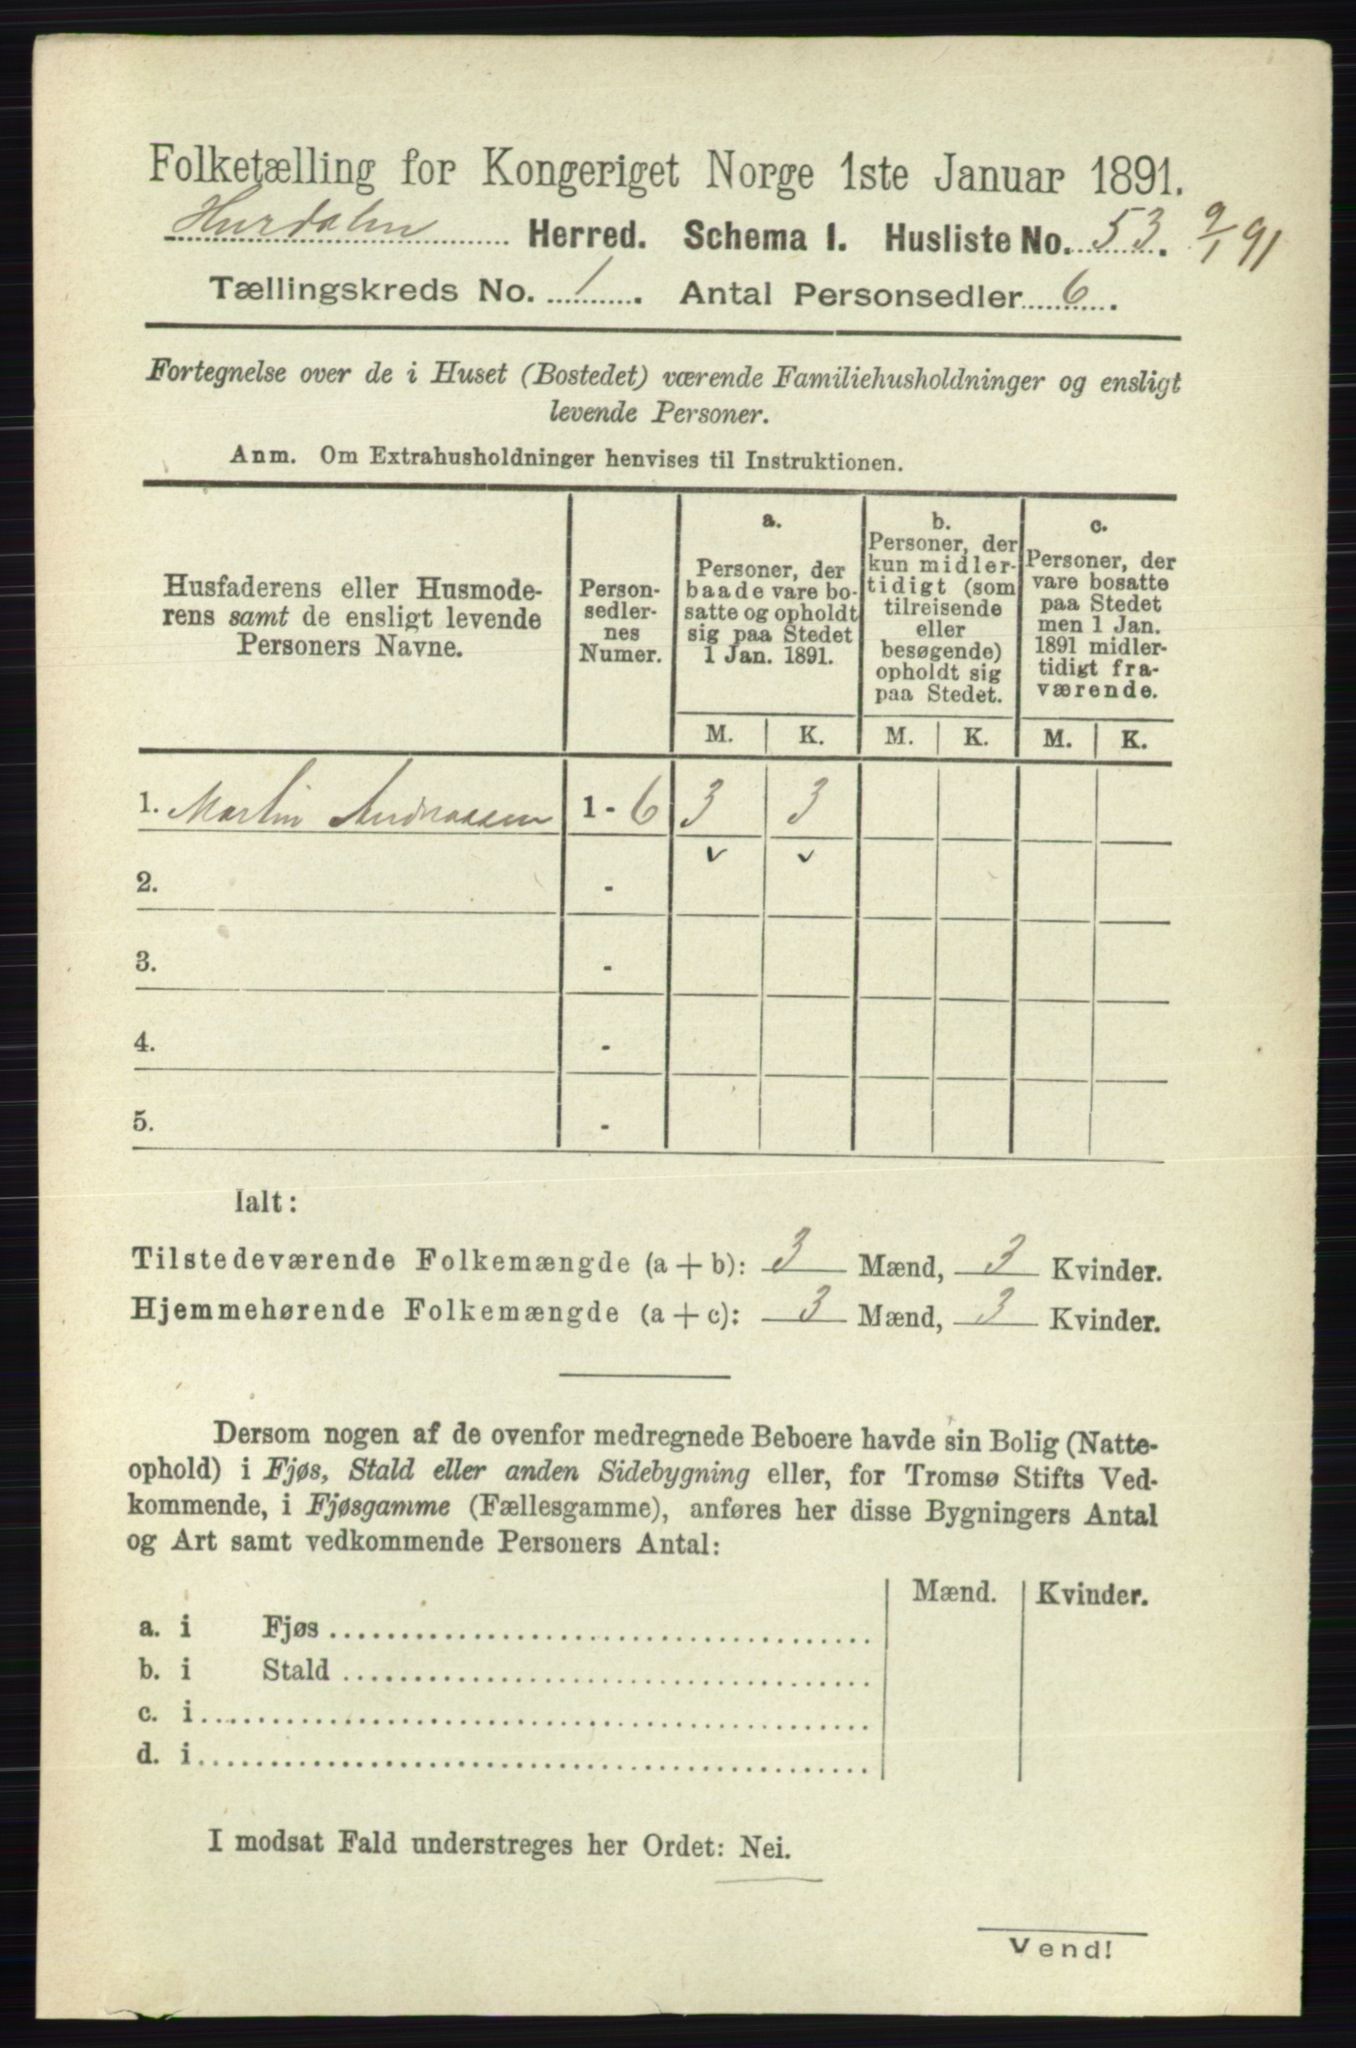 Folketælling for Kongeriget Norge 1ste Januar 1891.
Hurdalen Herred. Schema I. Husliste No. 53. 9/1 91
Tællingskreds No. 1. Antal Personsedler 6.
Fortegnelse over de i Huset (Bostedet) værende Familiehusholdninger og ensligt
levende Personer.
Anm. Om Extrahusholdninger henvises til Instruktionen.
Husfaderens eller Husmode-
rens samt de ensligt levende
Personers Navne.
Person-
sedler-
nes
Numer.
a.
Personer, der
baade vare bo-
satte og opholdt
sig paa Stedet
1 Jan. 1891.
b.
Personer, der
kun midler-
tidigt (som
tilreisende
eller
besøgende)
opholdt sig
paa Stedet.
c.
Personer, der
vare bosatte
paa Stedet
men 1 Jan.
1891 midler-
tidigt fra-
værende.
M. K. M. K. M. K.
1. Martin Andreassen 1 - 6 3 3
2. -
3. -
4. -
5. -
Ialt:
Tilstedeværende Folkemængde (a + b): 3 Mænd, 3 Kvinder.
Hjemmehørende Folkemængde (a + c): 3 Mænd, 3 Kvinder.
Dersom nogen af de ovenfor medregnede Beboere havde sin Bolig (Natte-
ophold) i Fjøs, Stald eller anden Sidebygning eller, for Tromsø Stifts Ved-
kommende, i Fjøsgamme (Fællesgamme), anføres her disse Bygningers Antal
og Art samt vedkommende Personers Antal:
Mænd. Kvinder.
a. i Fjøs
b. i Stald
c. i
d. i
I modsat Fald understreges her Ordet: Nei.
Vend!